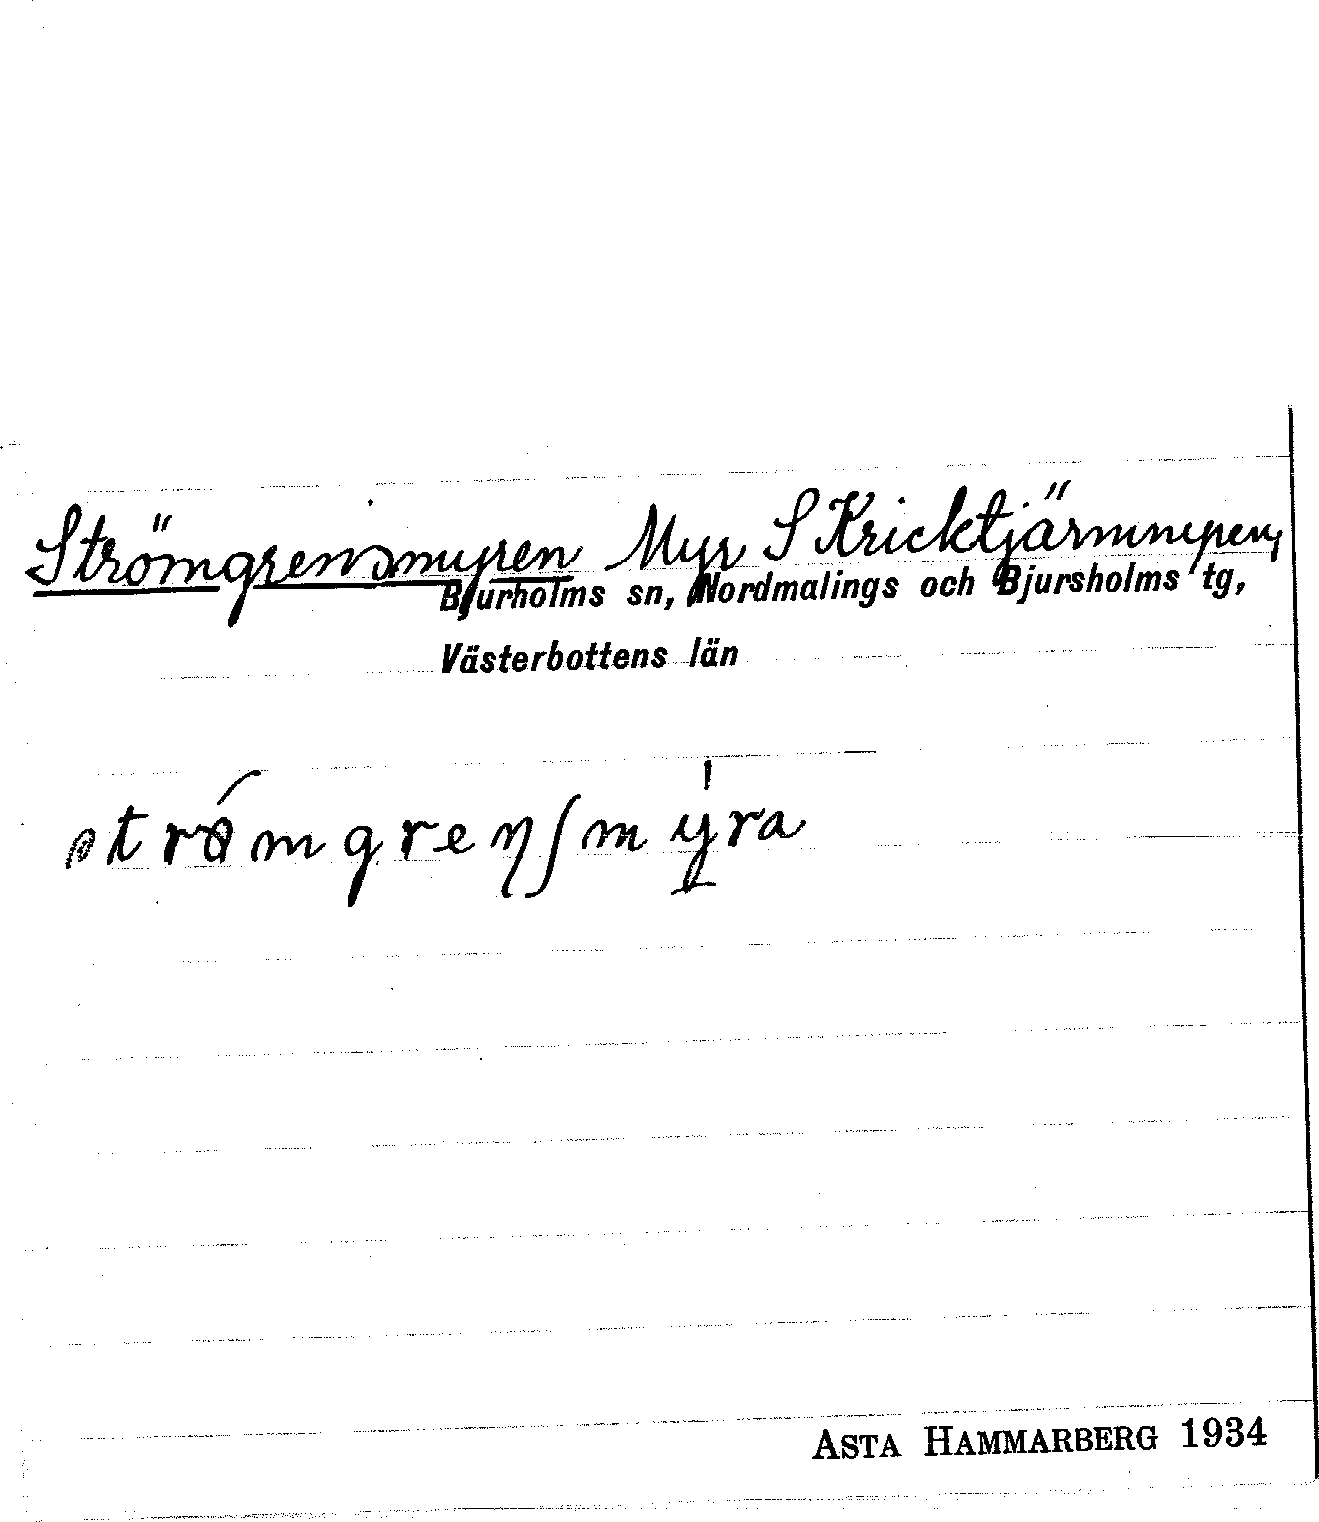 Strömgrensmyren Myr S Kricktjärnmyren,
Bjurholms sn, Nordmalings och Bjursholms tg,
Västerbottens län
strömgrenʃmyra
ASTA HAMMARBERG 1934